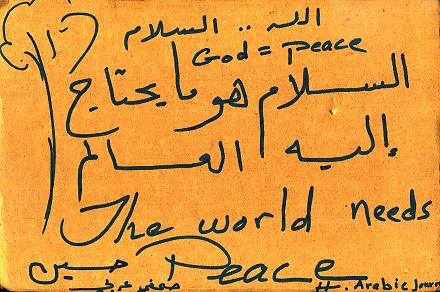 الله .. السلام
God = Peace
السلام هو ما يحتاج
إليه العالم
The world needs
Peace
حسين
صحفي عربي
H. Arabic Journ